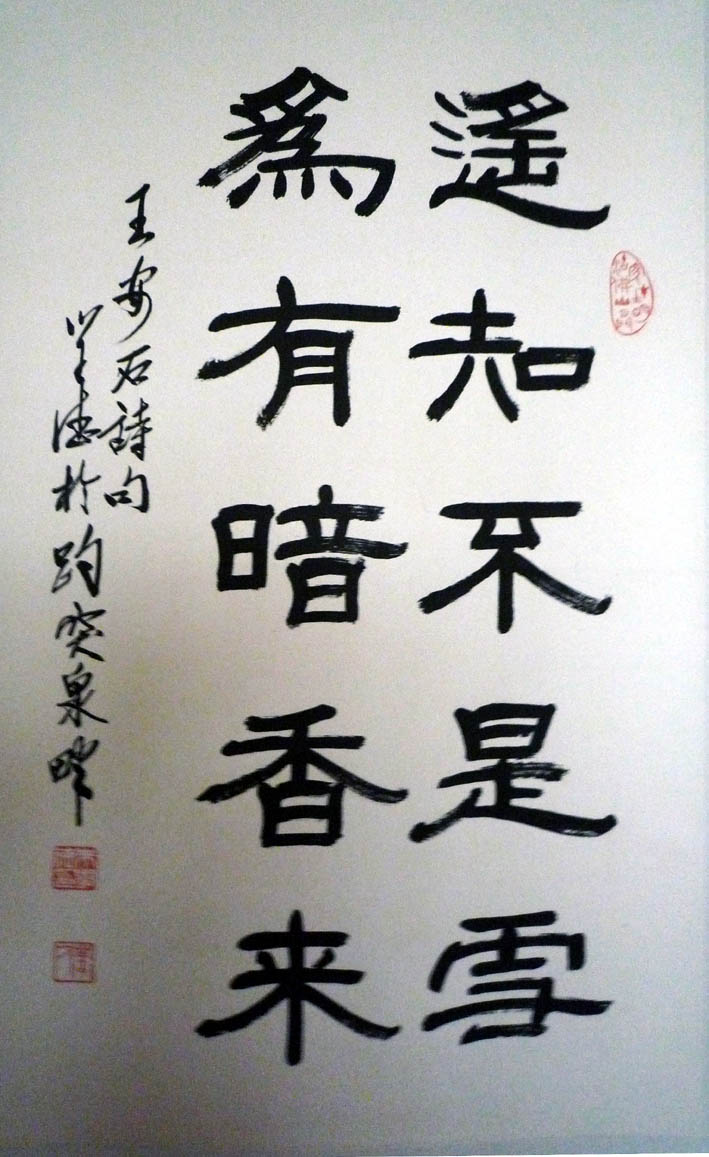 遙知不是雪
為有暗香来
王安石詩句
德於趵突泉畔